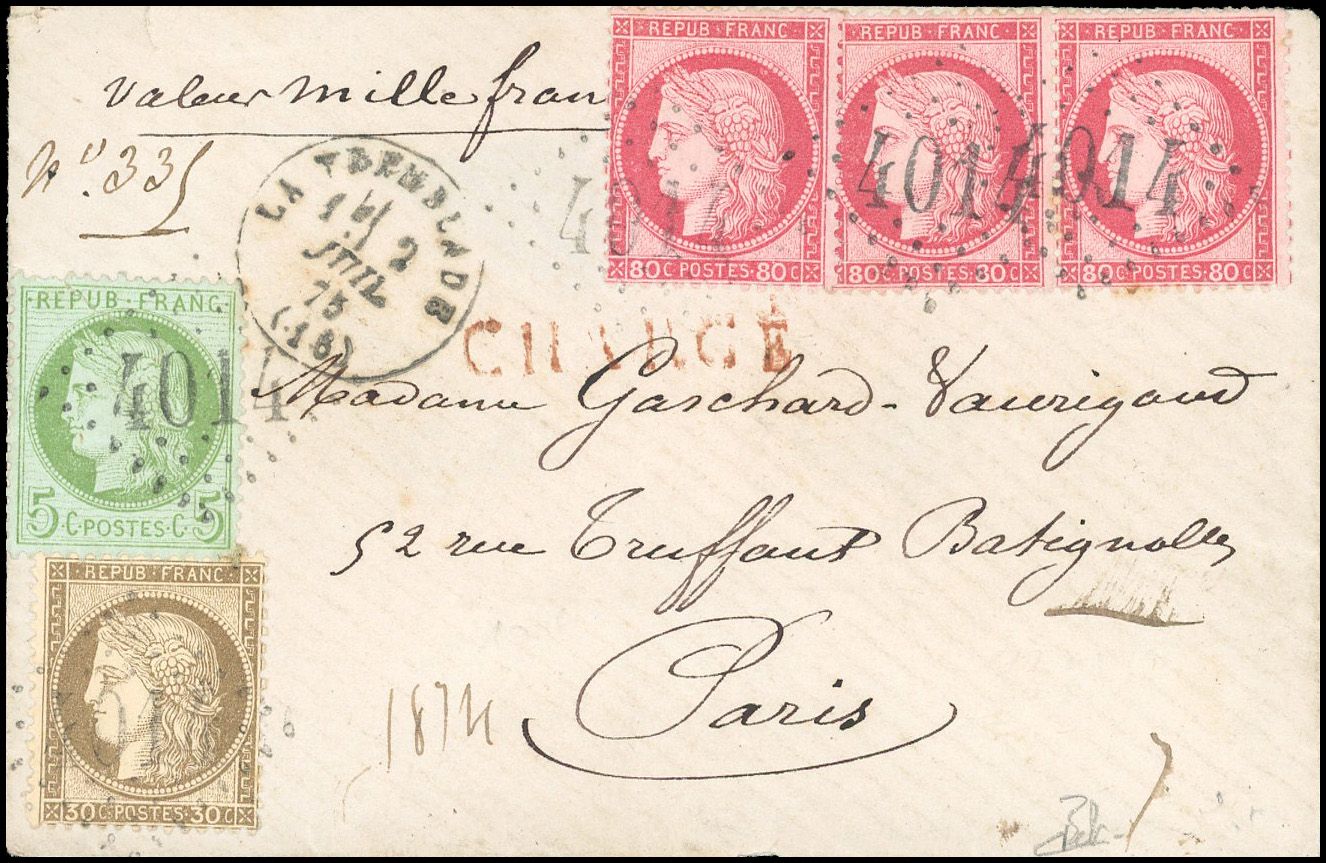 Valeur mille fran
N° 335
REPUB FRANC
80 C POSTES 80 C
REPUB FRANC
80 C POSTES 80 C
REPUB FRANC
80 C POSTES 80 C
4014
4014
4014
LA TREMBLADE
2
JUIL
75
(16)
CHARGÉ
REPUB FRANC
5 C POSTES C 5
4014
Madame Gaschard-Vaurigaud
52 rue Truffaut Batignolles
Paris
REPUB FRANC
30 C POSTES 30 C